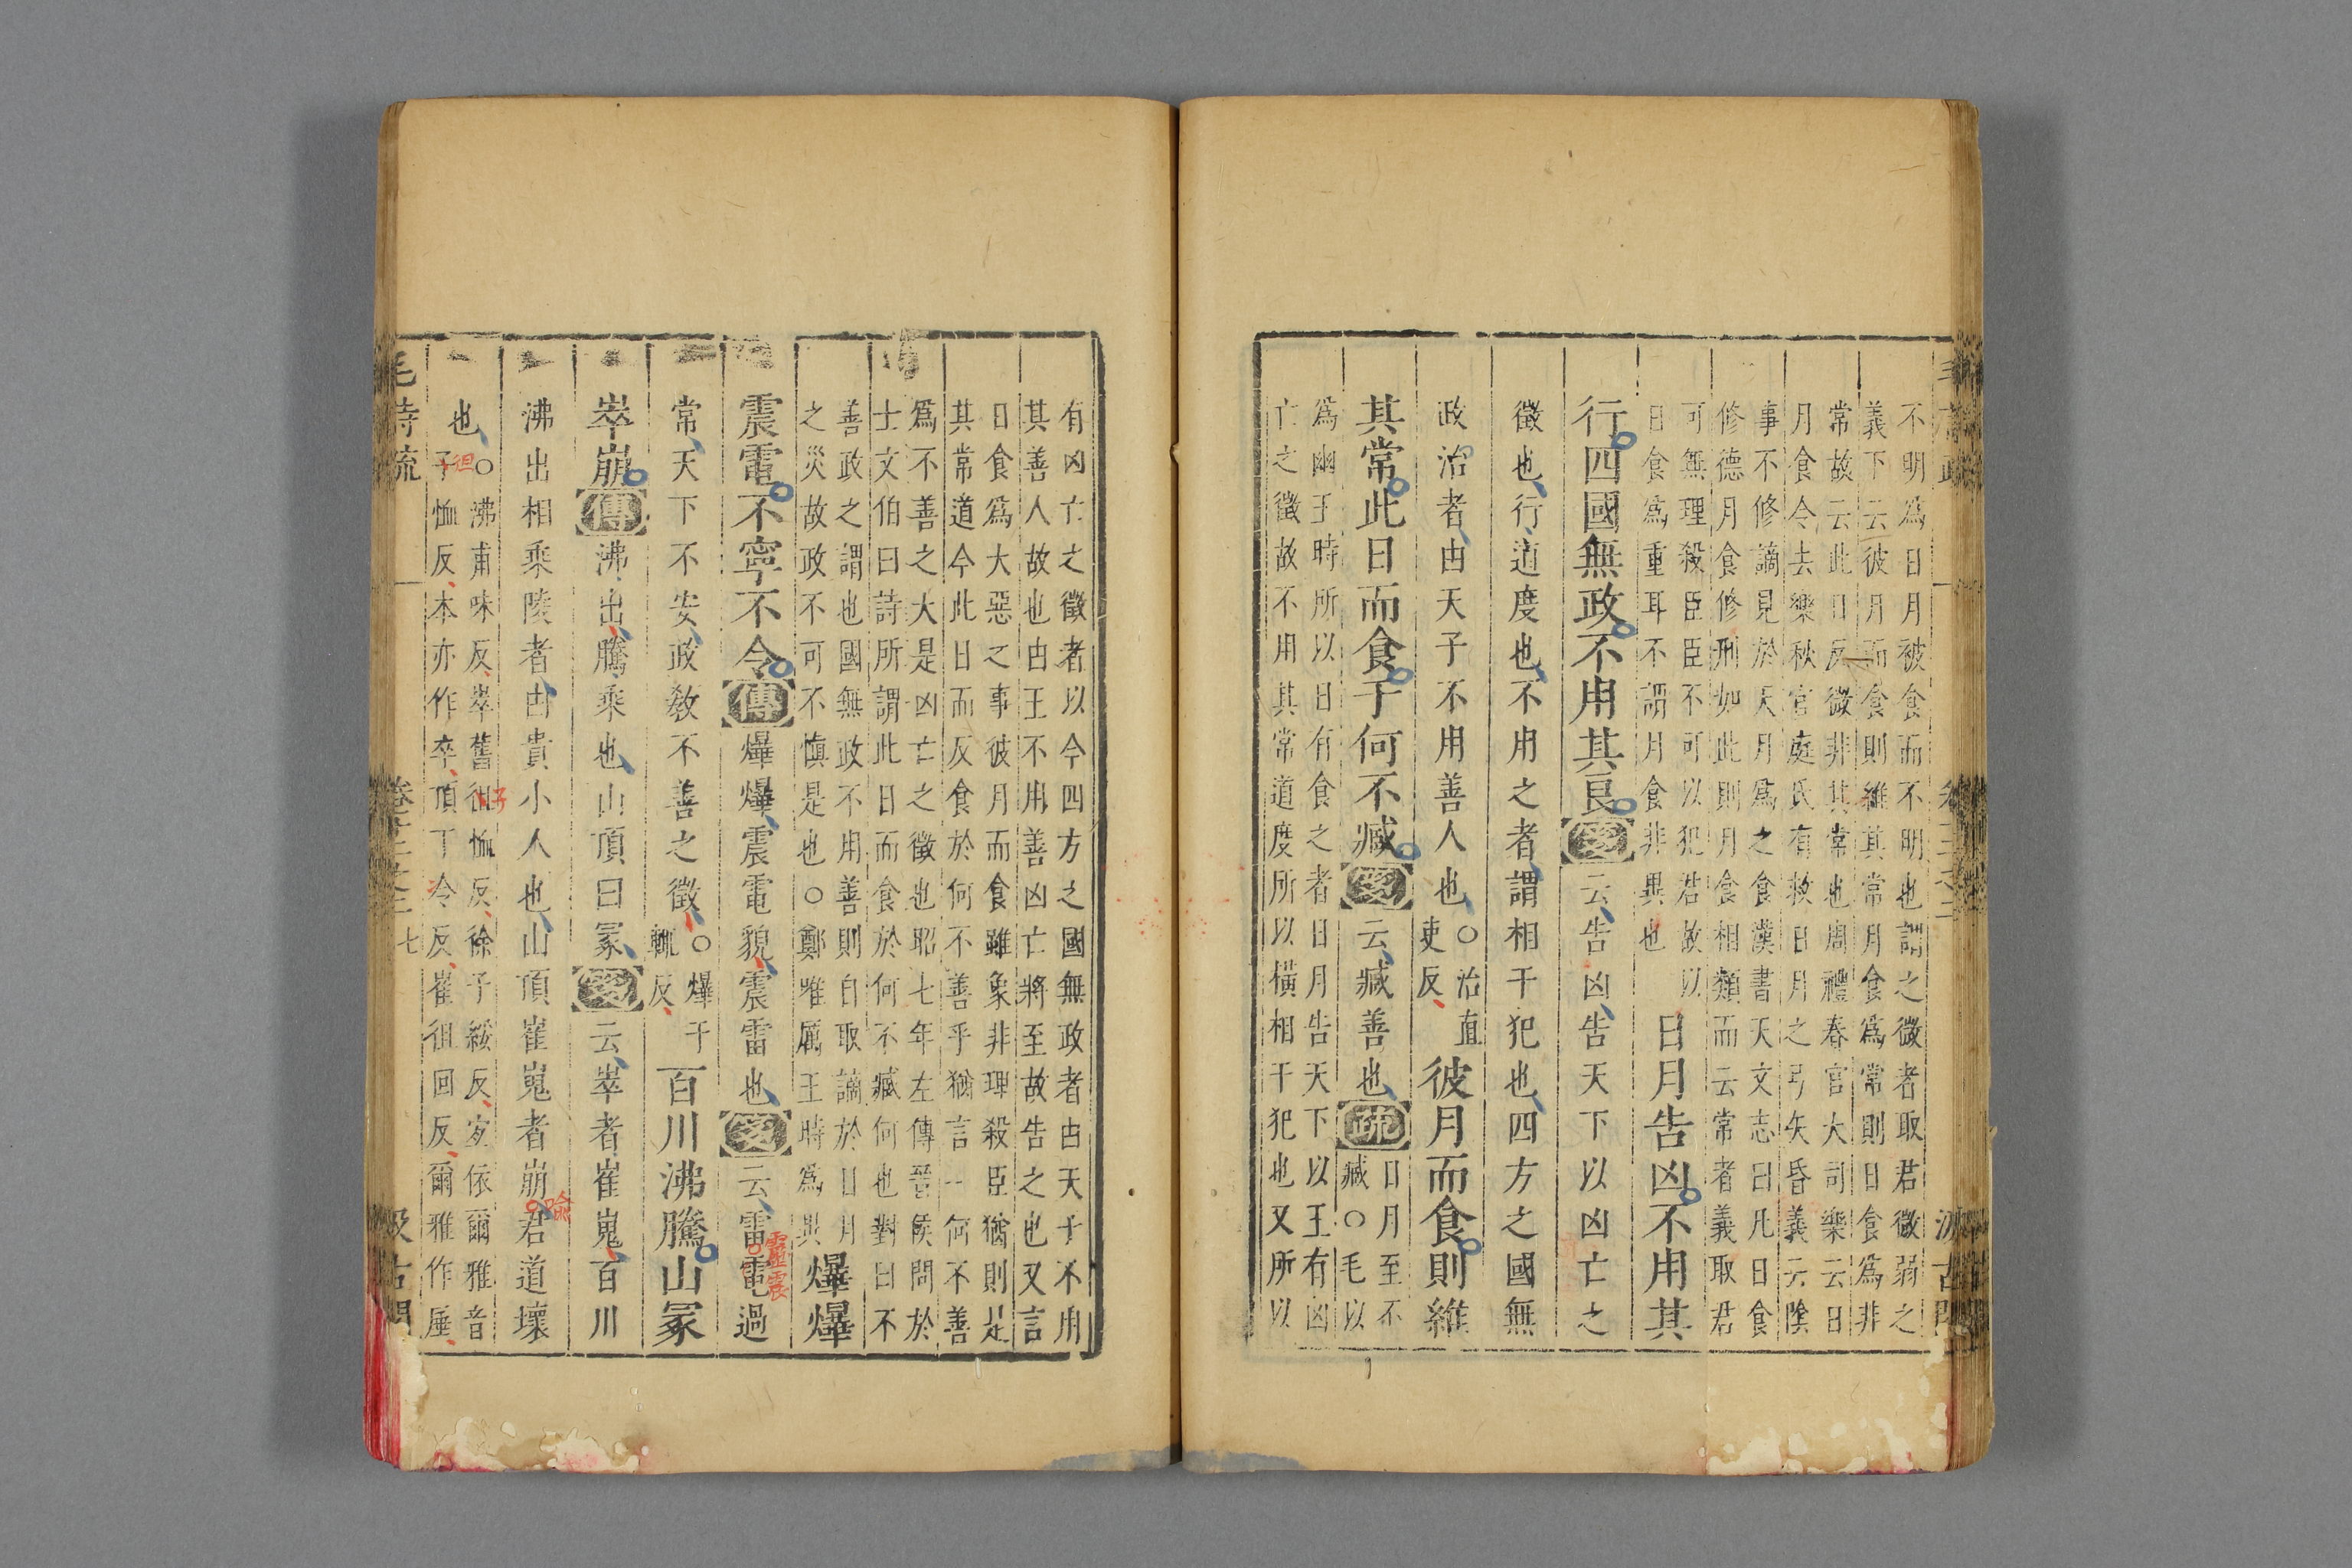 不明爲日月被食而不明也謂之微者取君微弱之
義下云彼月而食則維其常月食爲常則日食爲非
常故云此日反微非其常也周禮春官大司樂云日
月食令去樂秋官庭氏有救日月之弓矢昏義云陰
事不修謫見於天月爲之食漢書天文志曰凡日食
修德月食修刑如此則月食相類而云常者義取君
可無理殺臣臣不可以犯君故以
日食爲重耳不謂月食非異也
日月告凶不用其
行四國無政不用其良箋云告凶告天下以凶亡之
徵也行道度也不用之者謂相干犯也四方之國無
政治者由天子不用善人也
○治直
吏反
彼月而食則維
其常此日而食于何不臧箋云臧善也疏
日月至不
臧○毛以
爲幽王時所以日有食之者日月告天下以王有凶
亡之徵故不用其常道度所以橫相干犯也又所以
有凶亡之徵者以今四方之國無政者由天子不用
其善人故也由王不用善凶亡將至故告之也又言
日食爲大惡之事彼月而食雖象非理殺臣猶則是
其常道今此日而反食於何不善乎猶言一何不善
爲不善之大是凶亡之徵也昭七年左傳晉侯問於
士文伯曰詩所謂此日而食於何不臧何也對曰不
善政之謂也國無政不用善則自取謫於日月
之災故政不可不愼是也○鄭唯厲王時爲異
爗爗
震電不寧不令傳爗爗震電貌震雷也箋云雷電過
靁震
常天下不安政敎不善之徵
○爗于
輒反
百川沸騰山冢
崒崩傳沸出騰乘也山頂曰冢箋云崒者崔嵬百川
沸出相乘陵者由貴小人也山頂崔嵬者崩君道壞
喩
也
○沸甫味反崒舊徂恤反徐子綏反宐依爾雅音
子恤反本亦作卒頂丁令反崔徂回反爾雅作厜
徂
子
毛詩疏
七
汲古閣